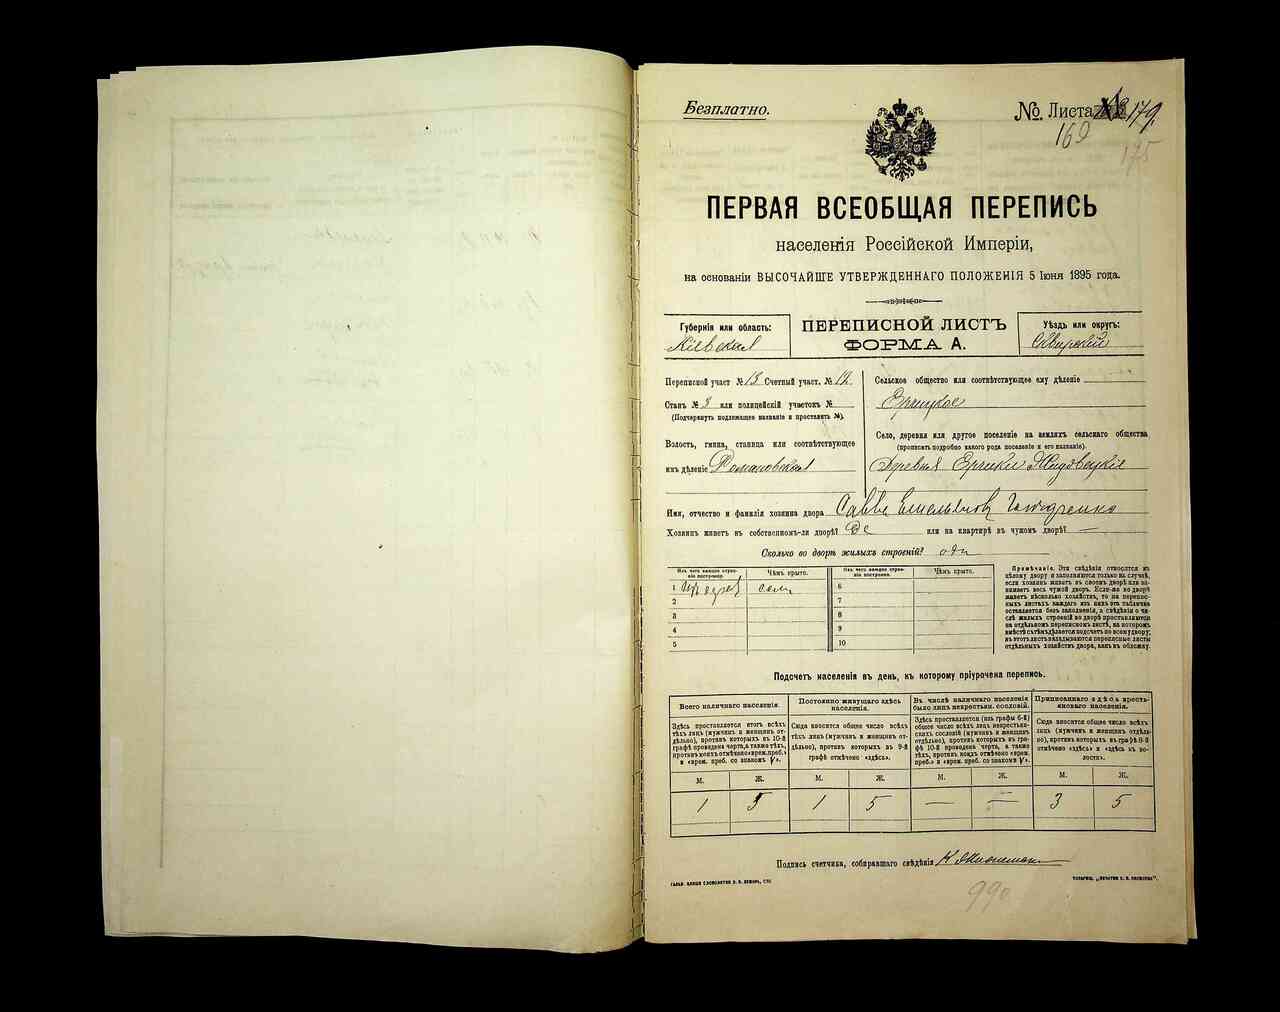 Безплатно.
No. Листа 179.
169
175
ПЕРВАЯ ВСЕОБЩАЯ ПЕРЕПИСЬ
населенія Россійской Имперіи,
на основаніи ВЫСОЧАЙШЕ УТВЕРЖДЕННАГО ПОЛОЖЕНІЯ 5 Іюня 1895 года.
Губернія или область:
Кіевская
ПЕРЕПИСНОЙ ЛИСТЪ
ФОРМА А.
Уѣздъ или округъ:
Сквирскій
Переписной участ № 13 Счетный участ. № 12.
Станъ № 3 или полицейскій участокъ №
(Подчеркнуть подлежащее названіе и проставить №).
Волость, гмина, станица или соотвѣтствующее
имъ дѣленіе Романовская
Сельское общество или соотвѣтствующее ему дѣленіе
Ерчицкое
Село, деревня или другое поселеніе на земляхъ сельскаго общества
(прописать подробно какого рода поселеніе и его названіе).
Деревня Ерчики
Имя, отчество и фамилія хозяина двора Савва Емельянов
Хозяинъ живетъ въ собственномъ-ли дворѣ? Да или на квартирѣ въ чужомъ дворѣ? —
Сколько во дворѣ жилыхъ строеній?
Изъ чего каждое строеніе построено.
Чѣмъ крыто.
Изъ чего каждое строеніе построено.
Чѣмъ крыто.
1
2
3
4
5
6
7
8
9
10
Примѣчаніе. Эти свѣдѣнія относятся къ
цѣлому двору и заполняются только въ случаѣ,
если хозяинъ живетъ въ своемъ дворѣ или занимаетъ
весь чужой дворъ. Если-же во дворѣ
живетъ нѣсколько хозяйствъ, то на переписныхъ
листахъ каждаго изъ нихъ эта табличка
оставляется безъ заполненія, а свѣдѣнія о числѣ
жилыхъ строеній во дворѣ проставляются
на отдѣльномъ переписномъ листѣ, на которомъ
вмѣстѣ съ тѣмъ дѣлается подсчетъ по всему двору;
въ этотъ листъ вкладываются переписные листы
отдѣльныхъ хозяйствъ двора, какъ въ обложку.
Подсчетъ населенія въ день, къ которому пріурочена перепись.
Всего наличнаго населенія.
Постоянно живущаго здѣсь населенія.
Въ числѣ наличнаго населенія было лицъ некрестьян. сословій.
Приписаннаго здѣсь крестьянскаго населенія.
Здѣсь проставляется итогъ всѣхъ
тѣхъ лицъ (мужчинъ и женщинъ отдѣльно),
противъ которыхъ въ 10-й
графѣ проведена черта, а также тѣхъ,
противъ коихъ отмѣчено «врем. преб.»
и «врем. преб. со знакомъ V».
Сюда вносится общее число всѣхъ
тѣхъ лицъ (мужчинъ и женщинъ отдѣльно),
противъ которыхъ въ 9-й
графѣ отмѣчено «здѣсь».
Здѣсь проставляется (изъ графы 6-й)
общее число всѣхъ лицъ некрестьянскихъ
сословій (мужчинъ и женщинъ
отдѣльно), противъ которыхъ въ графѣ
10-й проведена черта, а также
тѣхъ, противъ коихъ отмѣчено «врем.
преб.» и «врем. преб. со знакомъ V».
Сюда вносится общее число всѣхъ
лицъ (мужчинъ и женщинъ отдѣльно),
противъ которыхъ въ графѣ 8-й
отмѣчено «здѣсь» и «здѣсь въ волости».
М. Ж. М. Ж. М. Ж. М. Ж.
1 5 1 5 — — 3 5
Подпись счетчика, собиравшаго свѣдѣнія
990